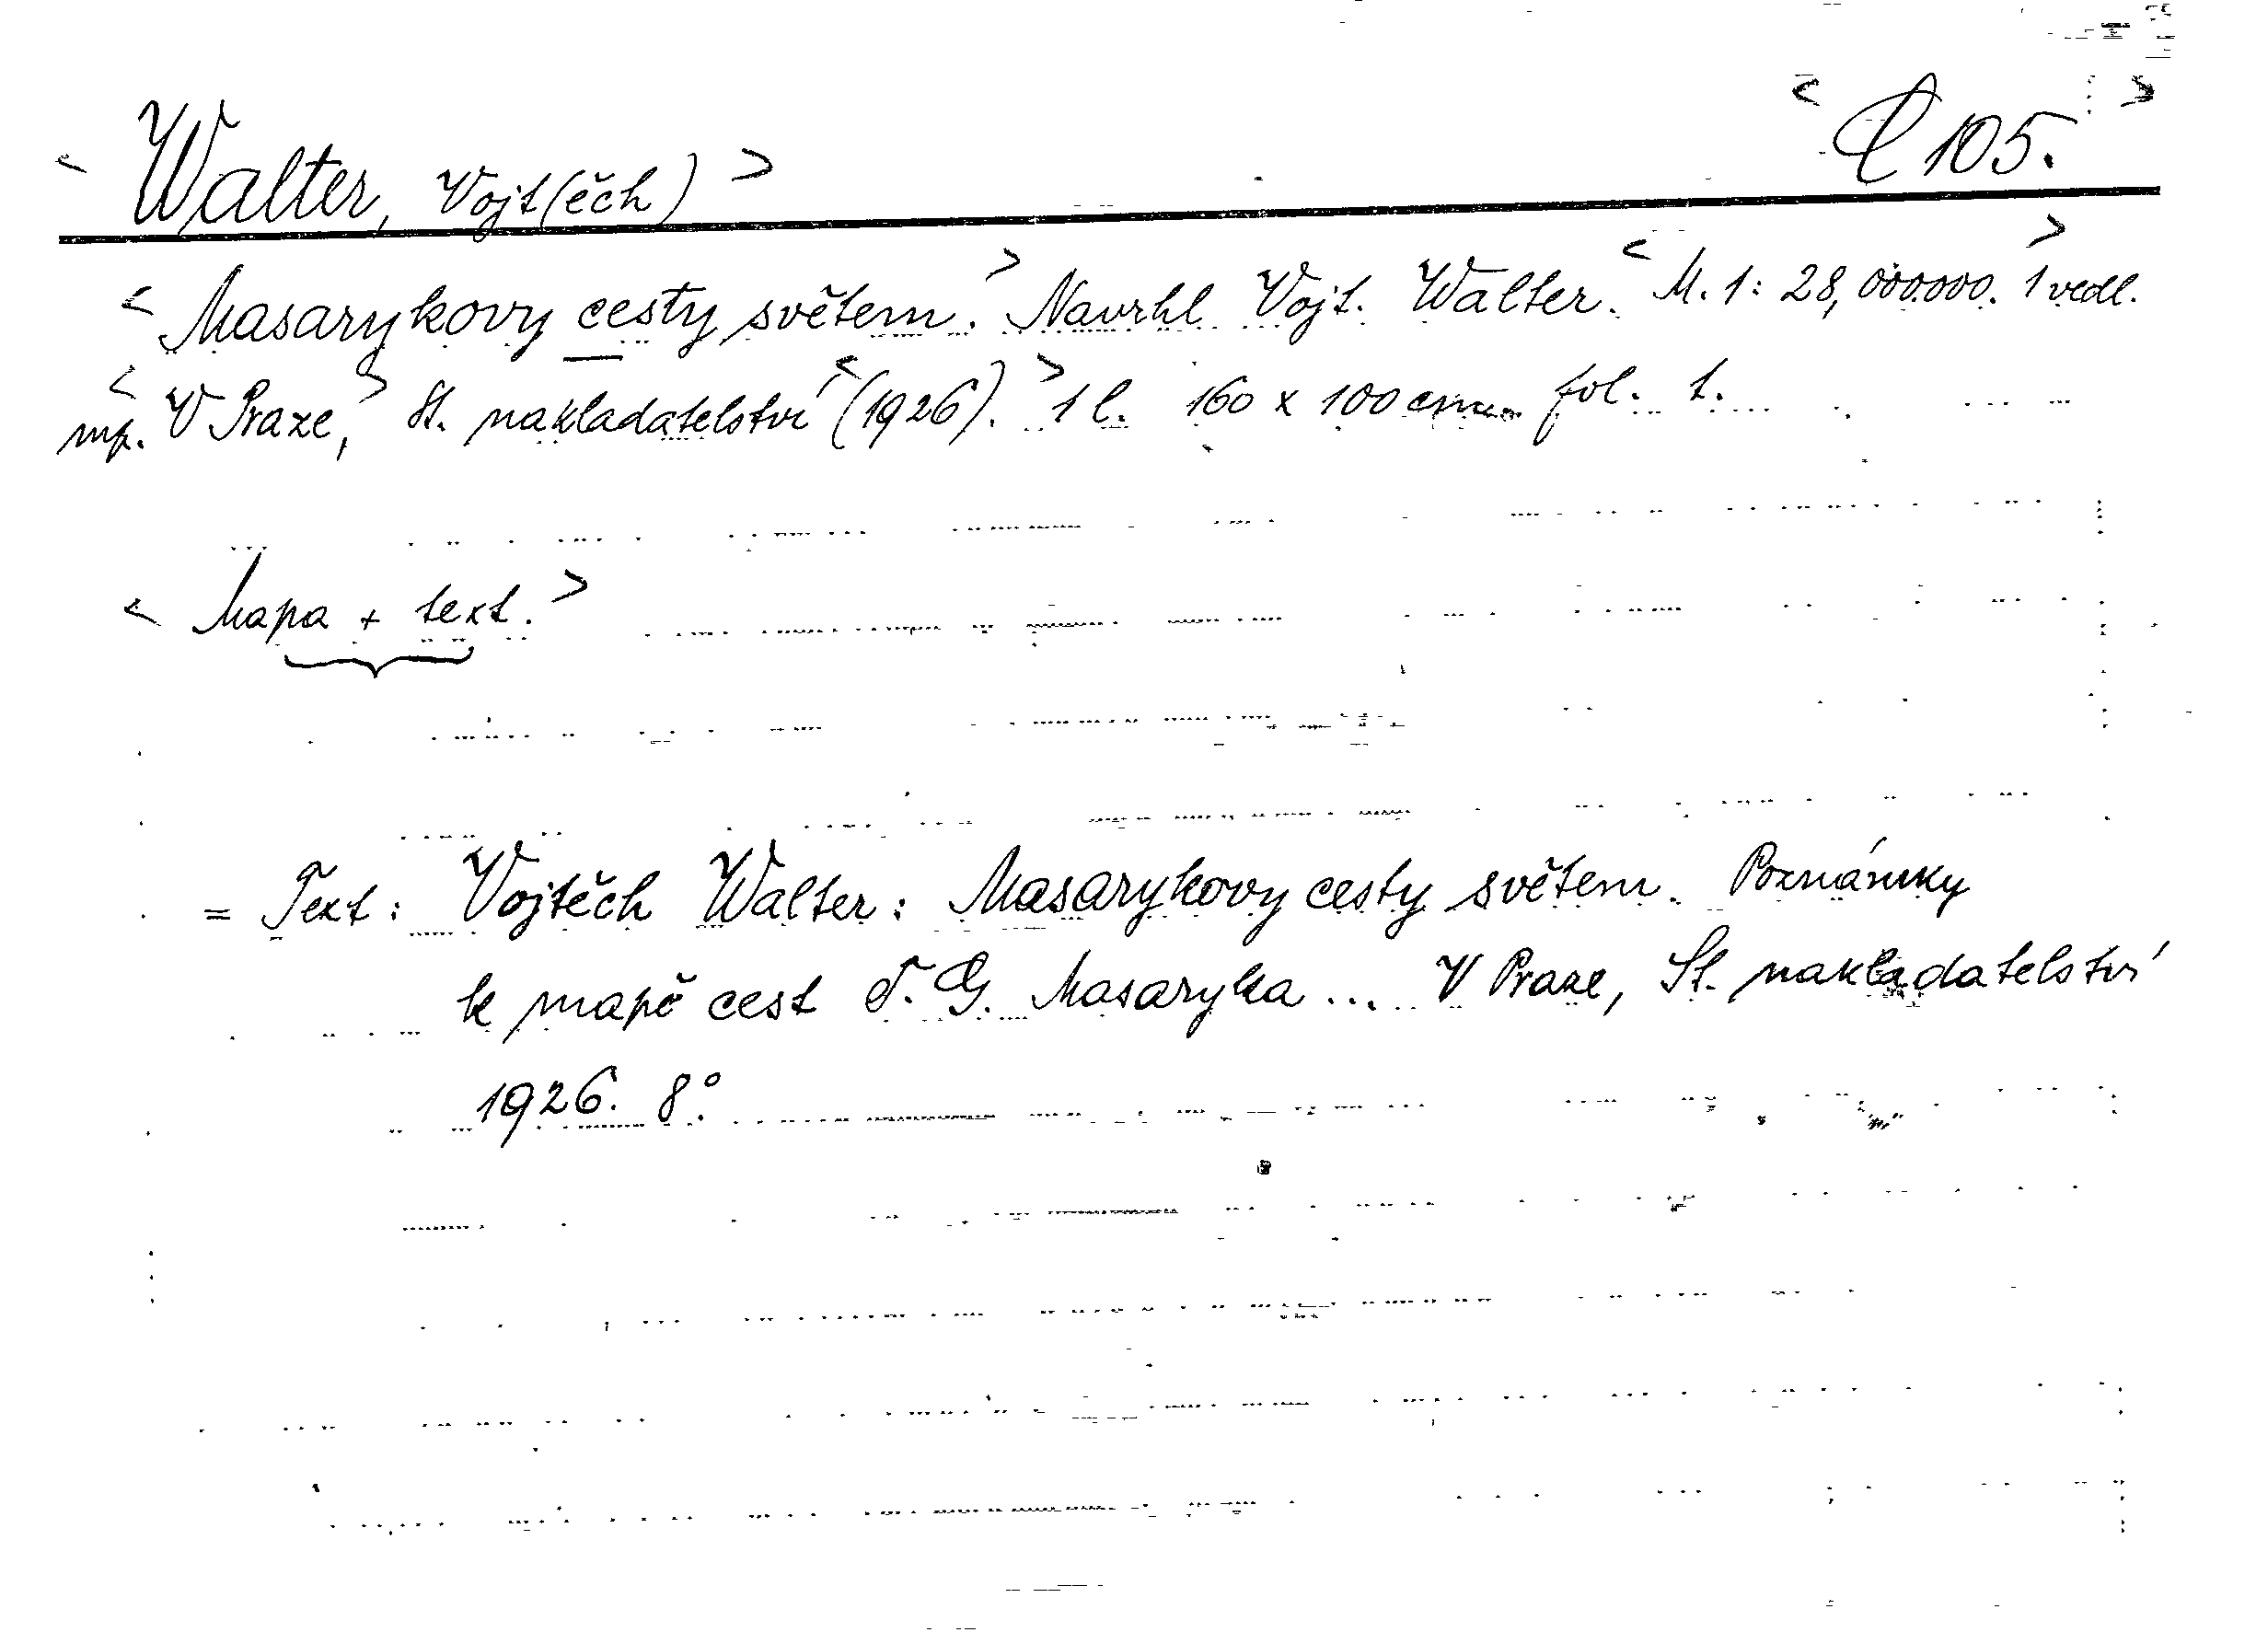 < Walter, Vojt(ěch) > < C 105. >
< Masarykovy cesty světem. > Navrhl Vojt. Walter. < M. 1: 28,000.000. > 1 vedl.
mp. < V Praze, > St. nakladatelství < (1926). > 1 l. 160 x 100 cm. fol. t.
< Mapa + text. >
= Text: Vojtěch Walter: Masarykovy cesty světem. Poznámky
k mapě cest T. G. Masaryka ... V Praze, St. nakladatelství
1926. 8°.